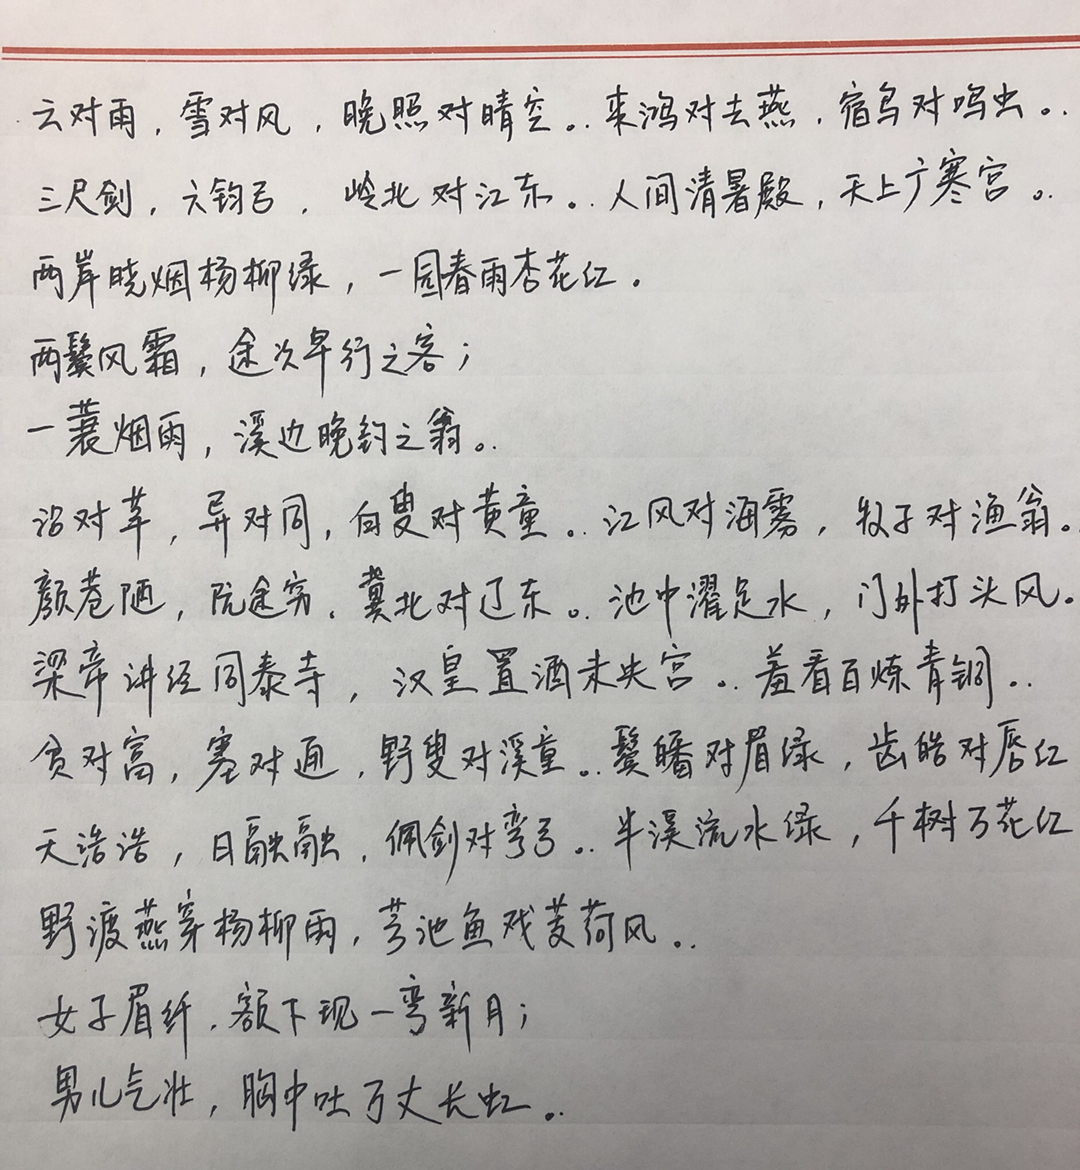 云对雨,雪对风,晚照对晴空。来鸿对去燕,宿鸟对鸣虫。
三尺剑,六钧弓,岭北对江东。人间清暑殿,天上广寒宫。
两岸晓烟杨柳绿,一园春雨杏花红。
两鬓风霜,途次早行之客;
一蓑烟雨,溪边晚钓之翁。
沿对革,异对同,白叟对黄童。江风对海雾,牧子对渔翁。
颜巷陋,阮途穷,冀北对辽东。池中濯足水,门外打头风。
梁帝讲经同泰寺,汉皇置酒未央宫。羞看百炼青铜。
贫对富,塞对通,野叟对溪童。鬓皤对眉绿,齿皓对唇红
天浩浩,日融融,佩剑对弯弓。半溪流水绿,千树万花红
野渡燕穿杨柳雨,芳池鱼戏芰荷风。
女子眉纤,额下现一弯新月;
男儿气壮,胸中吐万丈长虹。